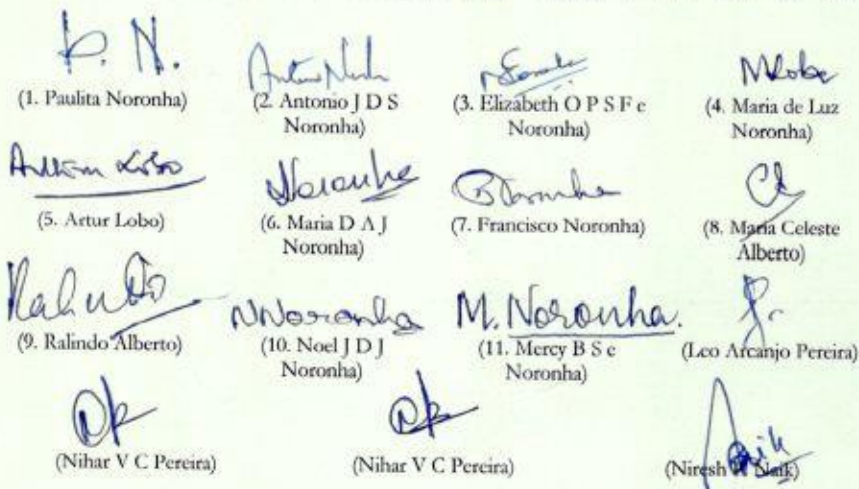 P. N.
(1. Paulita Noronha)
(2. Antonio J D S
Noronha)
(3. Elizabeth O P S F e
Noronha)
MLobo
(4. Maria de Luz
Noronha)
Lobo
(5. Artur Lobo)
Noronha
(6. Maria D A J
Noronha)
(7. Francisco Noronha)
(8. Maria Celeste
Alberto)
(9. Ralindo Alberto)
NNoronha
(10. Noel J D J
Noronha)
M. Noronha.
(11. Mercy B S e
Noronha)
(Leo Arcanjo Pereira)
(Nihar V C Pereira)
(Nihar V C Pereira)
(Niresh Naik)